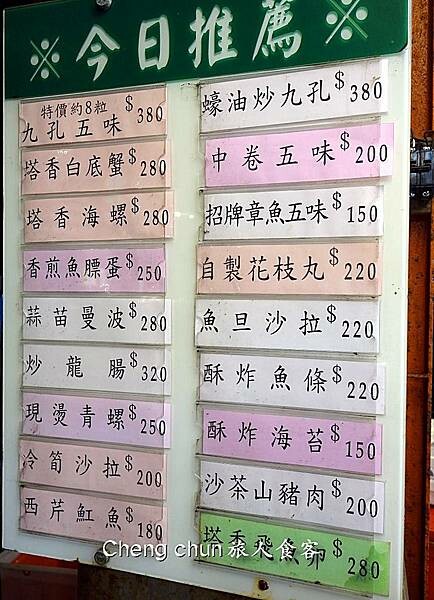 ※今日推薦※
特價約8粒
九孔五味 $380
塔香白底蟹 $280
塔香海螺 $280
香煎魚膘蛋 $250
蒜苗曼波 $280
炒龍腸 $320
現燙青螺 $250
冷筍沙拉 $200
西芹魟魚 $180
蠔油炒九孔 $380
中卷五味 $200
招牌章魚五味 $150
自製花枝丸 $220
魚旦沙拉 $220
酥炸魚條 $220
酥炸海苔 $150
沙茶山豬肉 $200
塔香飛魚卵 $280
Cheng chun旅人食客